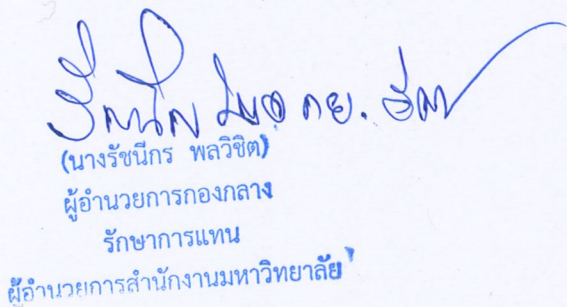 (นางรัชนีกร พลวิชิต)
ผู้อำนวยการกองกลาง
รักษาการแทน
ผู้อำนวยการสำนักงานมหาวิทยาลัย